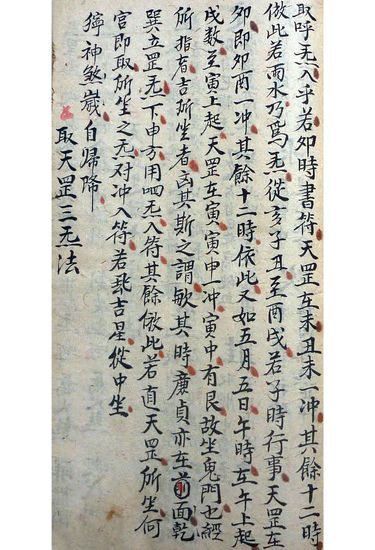 取呼炁入乎若卯時書符天罡在未丑未一冲其餘十二時
倣此若雨水乃爲炁從亥子丑至酉戌若子時行事天罡在
卯即卯酉一冲其餘十二時依此又如五月五日午時在午上起
戌数至寅上起天罡在寅寅申一冲寅中有艮故坐鬼門也經
所指者吉所坐者凶其斯之謂歟其時廉貞亦在前面乾
巽立罡炁下申方用呬炁入符其餘倣此若直天罡所坐何
宫即取所坐之炁对冲入符若吉星從中坐
獰神煞歲自歸降
取天罡三炁法